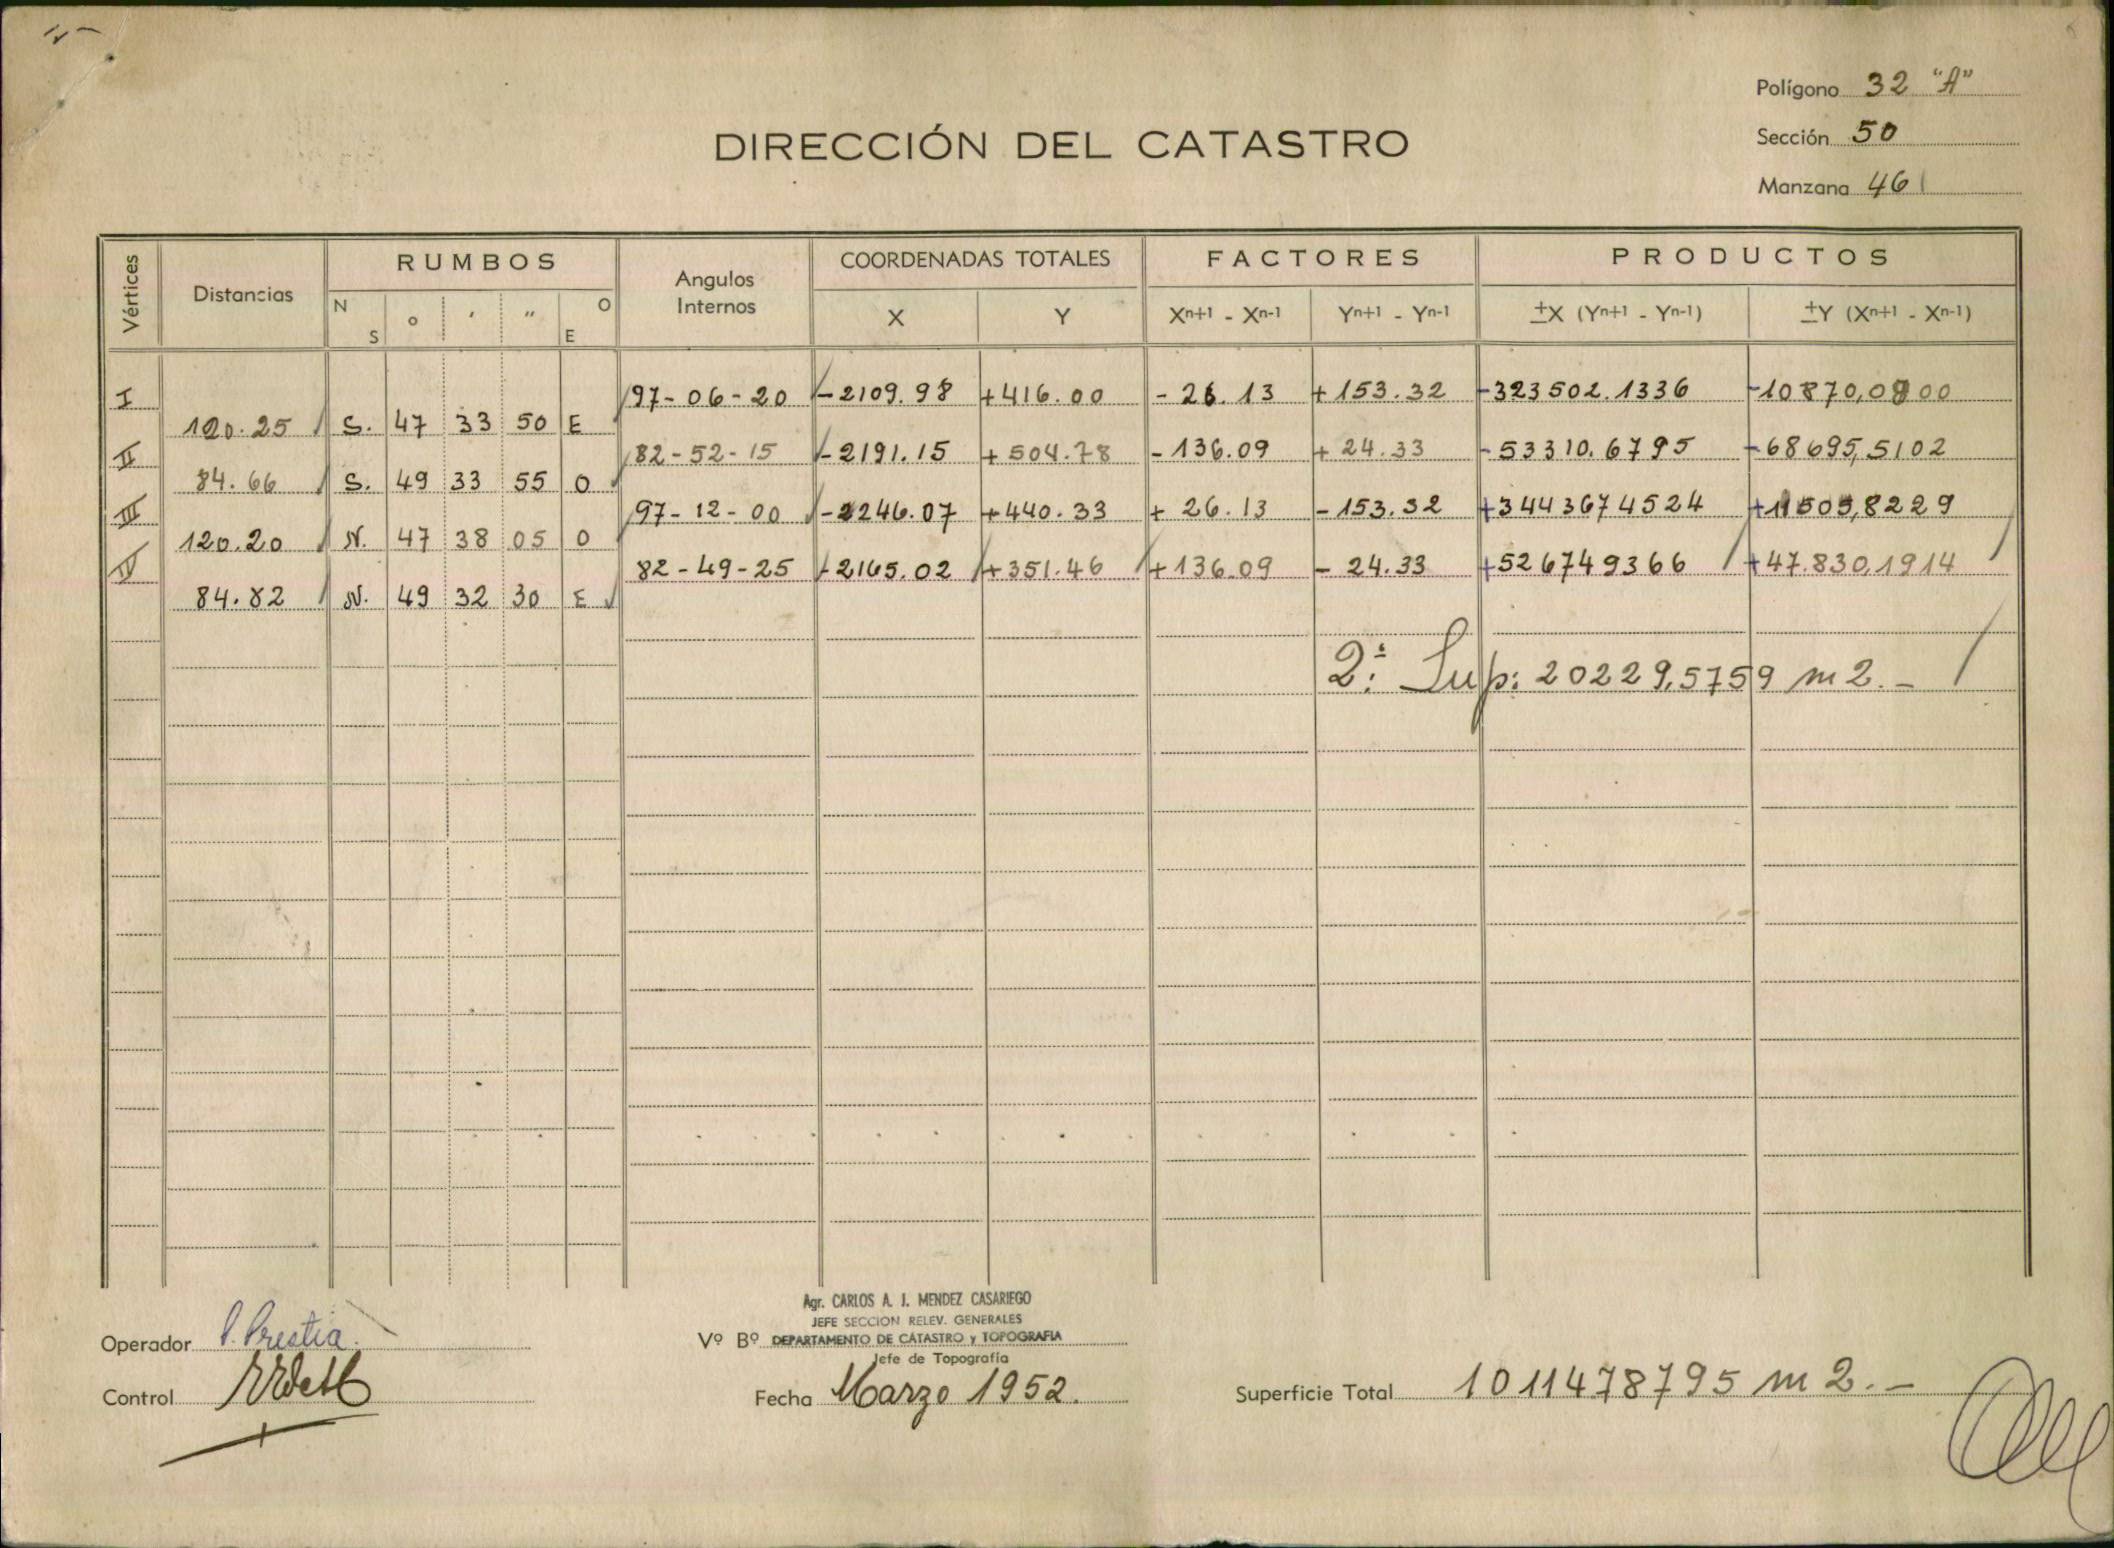 Polígono 32 "A"
DIRECCIÓN DEL CATASTRO
Sección 50
Manzana 461
Vértices Distancias RUMBOS Angulos Internos COORDENADAS TOTALES FACTORES PRODUCTOS
N S o ' " O E X Y Xn+1 - Xn-1 Yn+1 - Yn-1 ±X (Yn+1 - Yn-1) ±Y (Xn+1 - Xn-1)
I 97-06-20 -2109.98 +416.00 - 26.13 +153.32 -323502.1336 -10870,0800
120.25 S. 47 33 50 E
II 82-52-15 -2191.15 +504.78 -136.09 + 24.33 -53310.6795 -68695,5102
84.66 S. 49 33 55 O
III 97-12-00 -2246.07 +440.33 + 26.13 -153.32 +3443674524 +11505,8229
120.20 N. 47 38 05 O
IV 82-49-25 -2165.02 +351.46 +136.09 - 24.33 +526749366 +47.830,1914
84.82 N. 49 32 30 E
2.: Sup: 20229,5759 m2.-
Agr. CARLOS A. J. MENDEZ CASARIEGO
JEFE SECCION RELEV. GENERALES
Operador P. Prestia. Vº Bº DEPARTAMENTO DE CATASTRO y TOPOGRAFIA
Jefe de Topografía
Control Fecha Marzo 1952. Superficie Total 1011478795 m2.-